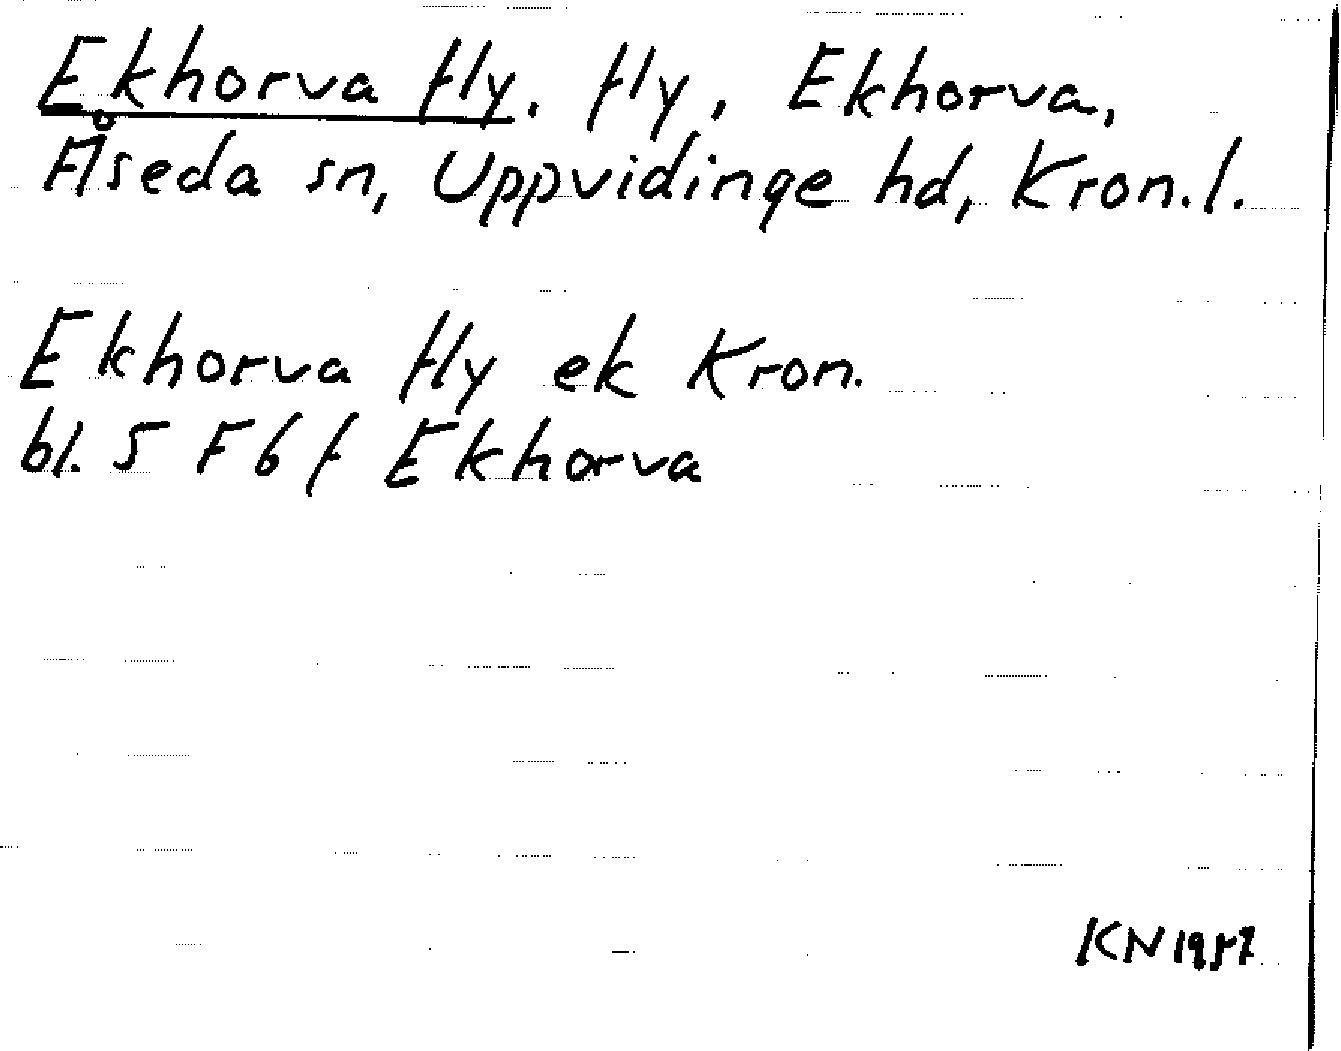 Ekhorva fly. fly, Ekhorva,
Åseda sn, Uppvidinge hd, Kron.l.
Ekhorva fly ek Kron.
bl. 5 F 6 f Ekhorva
KN 1957